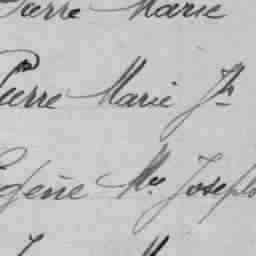 Pierre Marie
Pierre Marie Jh
Eugène Mie Joseph